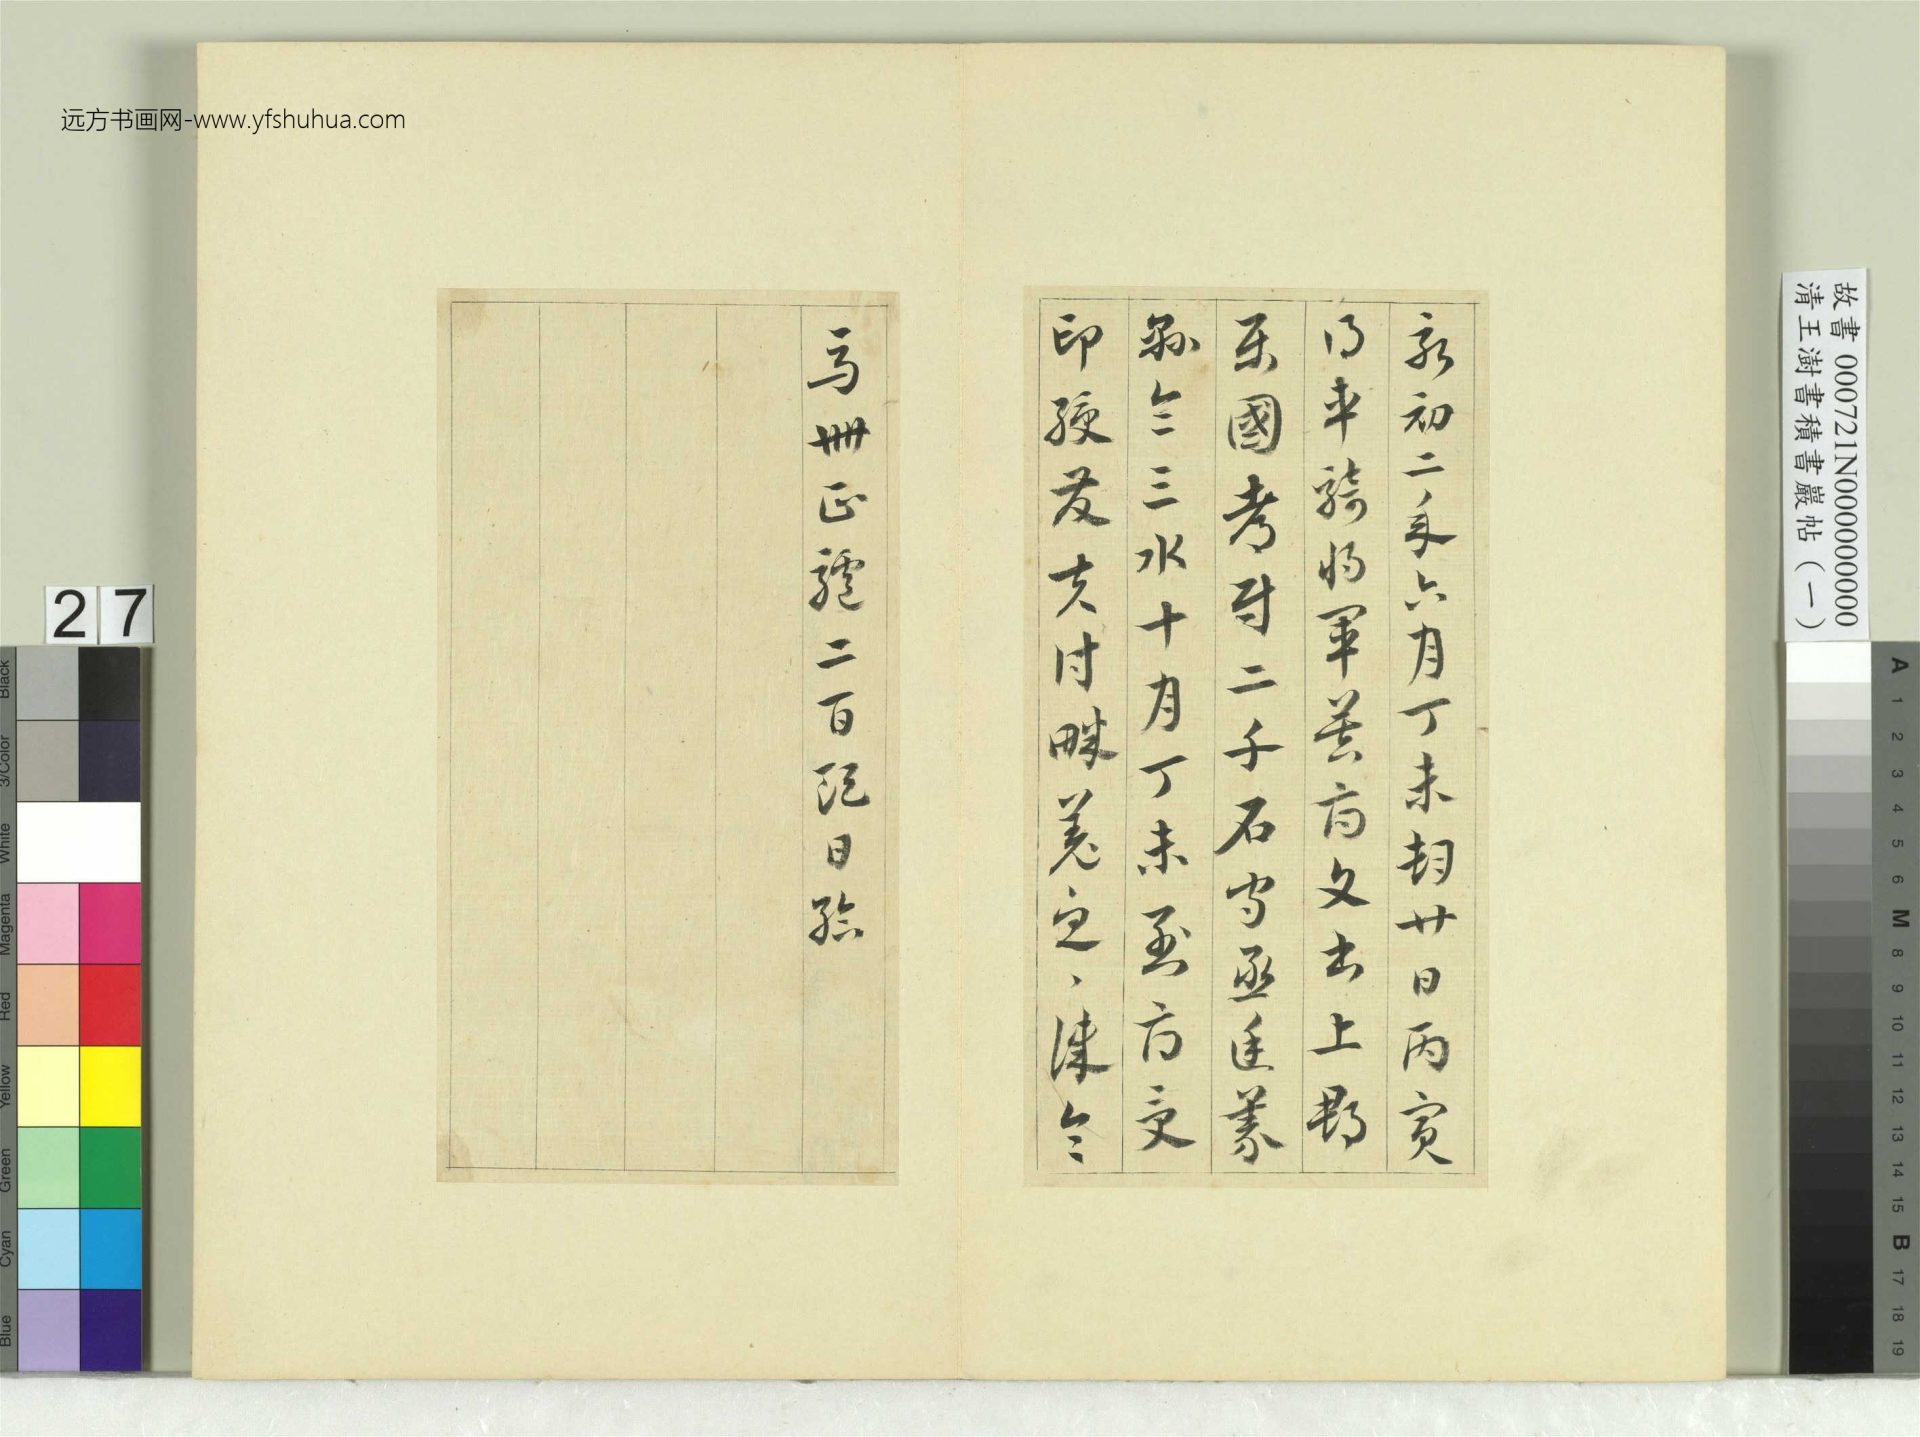 远方书画网-www.yfshuhua.com
永初二年六月丁未朔廿日丙寅
得車騎將軍莫府文書上郡
屬國都尉二千石守丞廷義
縣令三水十月丁未到府受
印綬發夫討畔羌急、律令
馬卌匹驢二百頭日給
故書 000721N000000000
清王澍書積書巖帖（一）
27
Black
3/Color
White
Magenta
Red
Yellow
Green
Cyan
Blue
A
1
2
3
4
5
6
M
8
9
10
11
12
13
14
15
B
17
18
19